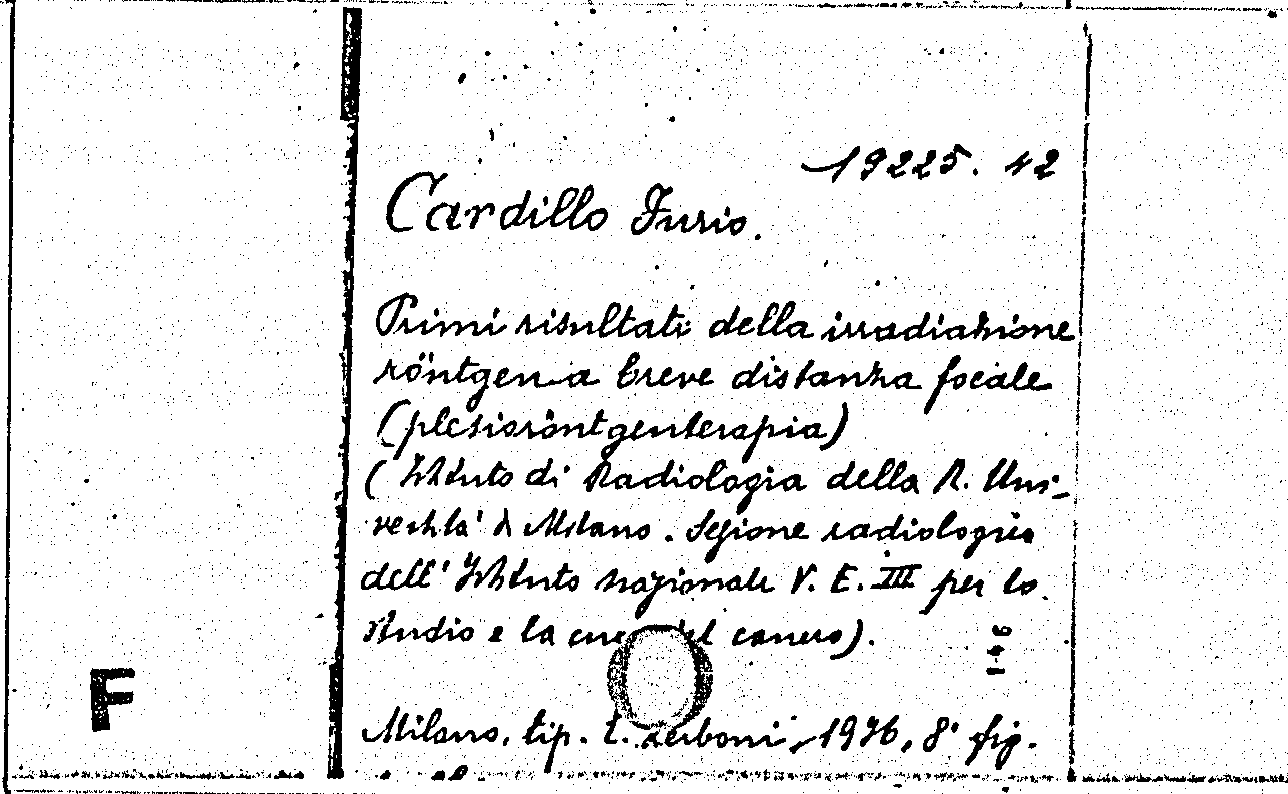 19225. 42
Cardillo Furio.
Primi risultati della irradiazione
röntgen a breve distanza focale
(plesioröntgenterapia)
(Istituto di Radiologia della R. Uni-
versità di Milano. Sezione radiologica
dell' Istituto nazionale V. E. III per lo
studio e la cura del cancro).
146
F
Milano, tip. t. Zerboni, 1936, 8° fig.